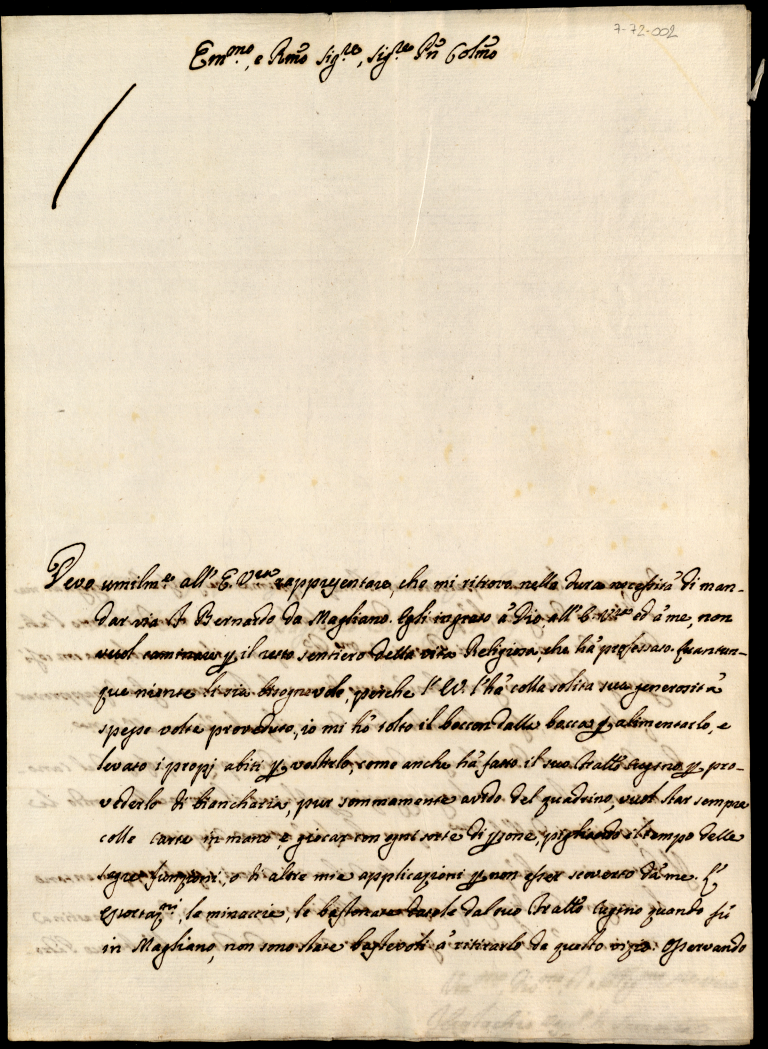 7-72-002
Em.mo, e Rmo Sig.re, Sig.re Pñ Colmo
Devo umilm.te all' E. V.ra rappresentare, che mi ritrovo nella dura necessità di man-
dar via Bernardo da Magliano. Egli ingrato à Dio all' E. V.ra ed à me, non
vuol caminare p il retto sentiero della vita Religiosa, che hà professato. Quantun-
que niente li sia bisognevole, perche l' E.V. l'hà colla solita sua generosità
spesse volte proveduto, io mi hò tolto il boccon dalla bocca p alimentarlo, e
levato i proprj abiti p vestirlo, come anche hà fatto il suo Fratello Cugino p pro-
vederlo di biancharia, pur sommamente avido del quadrino, vuol star sempre
colle carte in mano e giocar con ogni sorte di psone, pigliando il tempo delle
sagre funzioni, o di altre mie applicazioni p non esser scoverto dà me. L'
esortaz.ni, le minaccie, le bastonate dateli dal suo Fratello Cugino quando fù
in Magliano, non sono state bastevoli à ritirarlo da questo vizio. Osservando